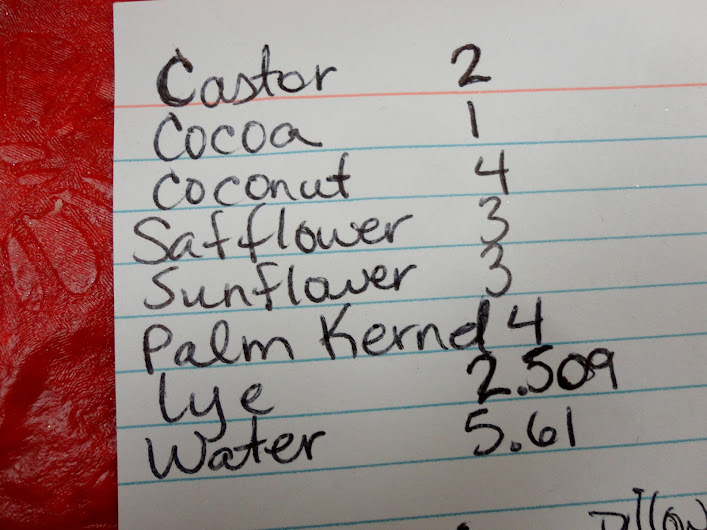 Castor 2
Cocoa 1
Coconut 4
Safflower 3
Sunflower 3
Palm Kernel 4
Lye 2.509
Water 5.61